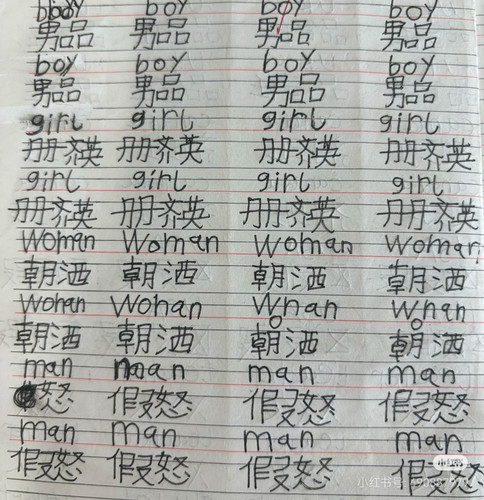 boy boy boy boy
男品 男品 男品 男品
boy boy boy boy
男品 男品 男品 男品
girl girl girl girl
英 英 英 英
girl girl girl girl
英 英 英 英
Woman Woman Woman Woman
朝洒 朝洒 朝洒 朝洒
Wohan Wohan
朝洒 朝洒 朝洒 朝洒
man man man
怒 假怒 假怒 假怒
man man man man
假怒 假怒 假怒 假怒
小红书
小红书号: